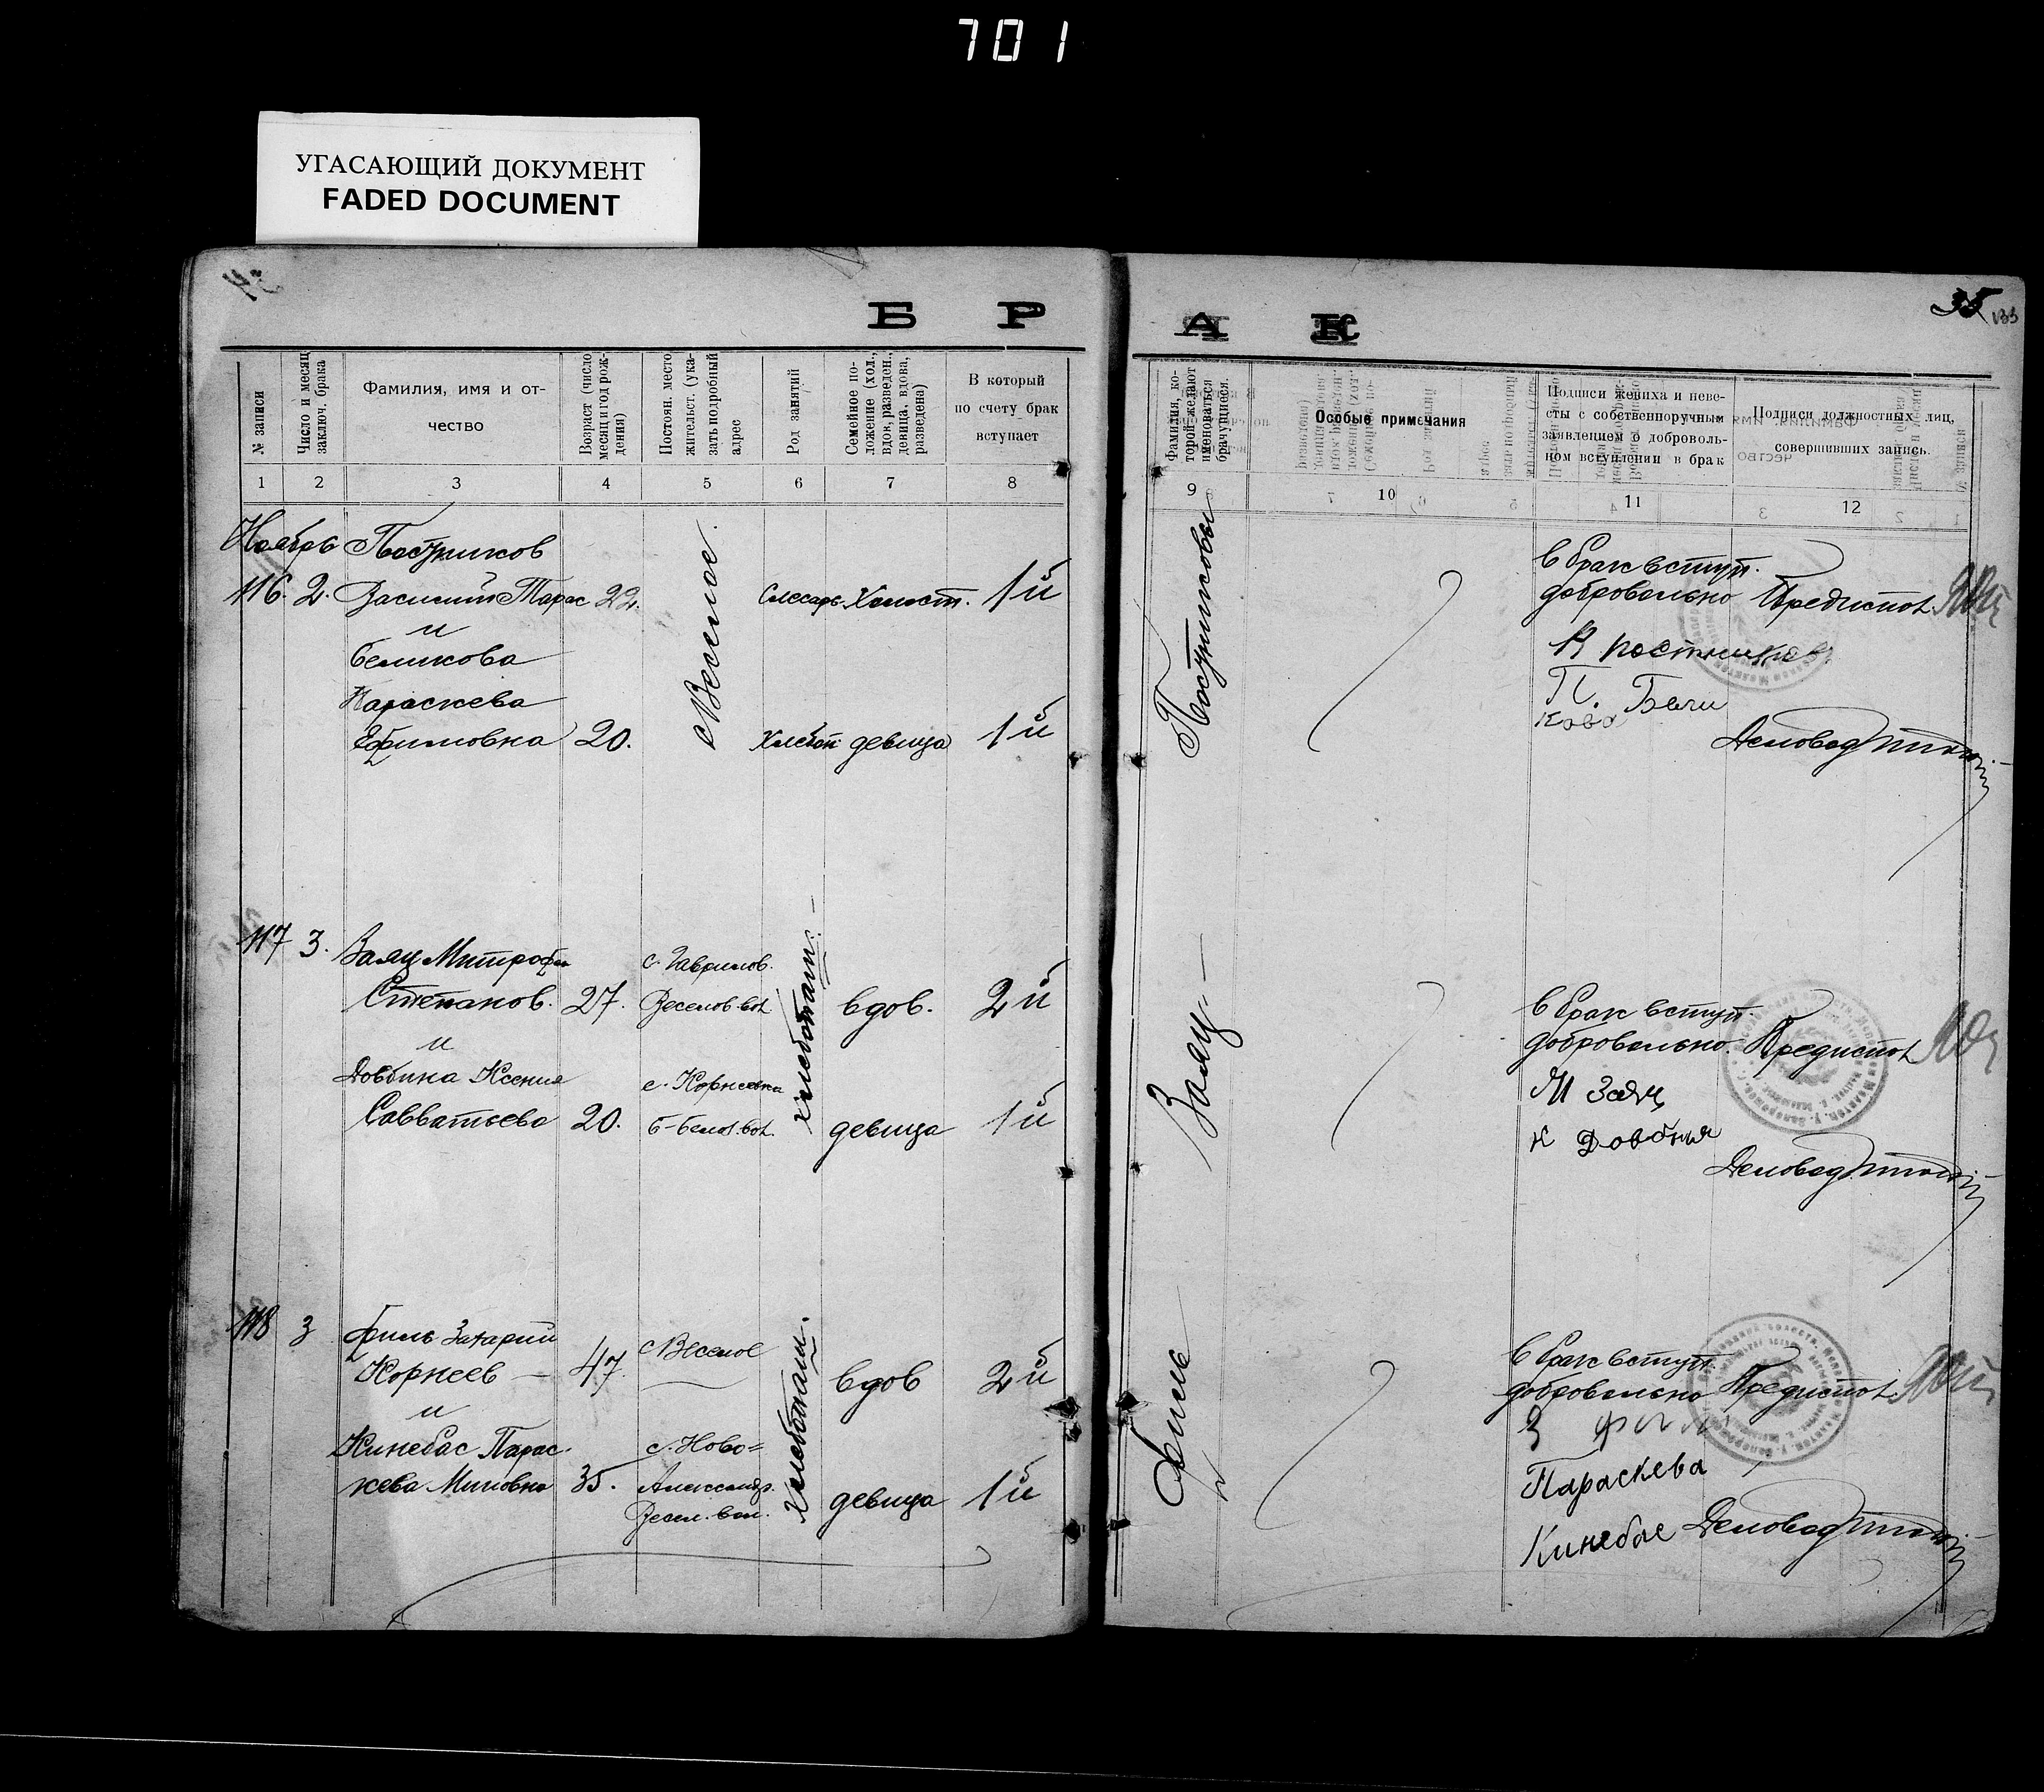 701
УГАСАЮЩИЙ ДОКУМЕНТ
FADED DOCUMENT
34
35
133
Б Р А К
№ записи
Число и месяц заключ. брака
Фамилия, имя и от-
чество
Возраст (число месяц и год рож-дения)
Постоян. место жительст. (ука-зать подробный адрес
Род занятий
Семейное по-ложение (хол., вдов, разведен., девица, вдова, разведена)
В который
по счету брак
вступает
Фамилия, ко-торой желают именоваться брачущиеся.
Особые примечания
Подписи жениха и неве-
сты с собственноручным
заявлением о доброволь-
ном вступлении в брак
Подписи должностных лиц,
совершивших запись.
1 2 3 4 5 6 7 8 9 10 11 12
Ноябрь Постников
116. 2. Василий Тарас 22. с Веселое. Слесарь. Холост. 1й
и
Беликова
Параскева
Ефимовна 20. Хлебоп девица 1й
Постниковы
в брак вступ.
добровольно Предиспол.
В Постников
П. Бели
кова
Деловод
117 3. Заяц Митроф
Степанов. 27. с. Гаврилов. Веселов. вол. хлебопаш. вдов. 2й
и
Довбина Ксения
Савватьева 20. с. Корнеевка Б-Белоз. вол. девица 1й
Заяц
в брак вступ.
добровольно. Предиспол
М Заяц
К Довбня
Деловод
118 3 Филь Захарий
Корнеев — 47. с Веселое хлебопаш. вдов 2й
и
Кинебас Парас-
кева Миновна 35. с. Ново=
Александр.
Весел. вол. девица 1й
Филь
в брак вступ.
добровольно Предиспол.
З Филь
Параскева
Кинебас Деловод